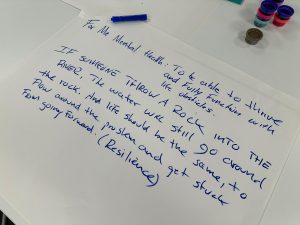 For Me Mental Health: To be able to thrive
and fully function with
life obstacles.
IF SOMEONE THROW A ROCK INTO THE
RIVER. The water will still go around
the rock. And life should be the same, to
flow around the problem and get stuck
from going forward. (Resilience)